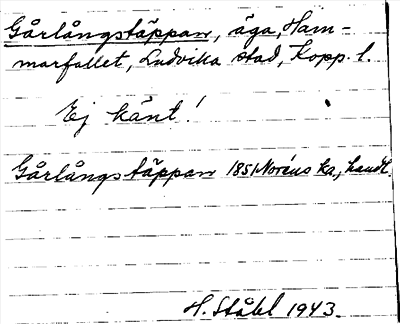 Gårlångstäppan, äga, Ham-
marfallet, Ludvika stad, Kopp. l.
Ej känt!
Gårlångstäppan 1851 Noréns ka, handl.
H. Ståhl 1943.